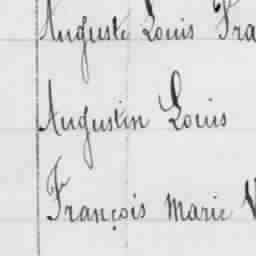 Auguste Louis Fra
Augustin Louis
François Marie